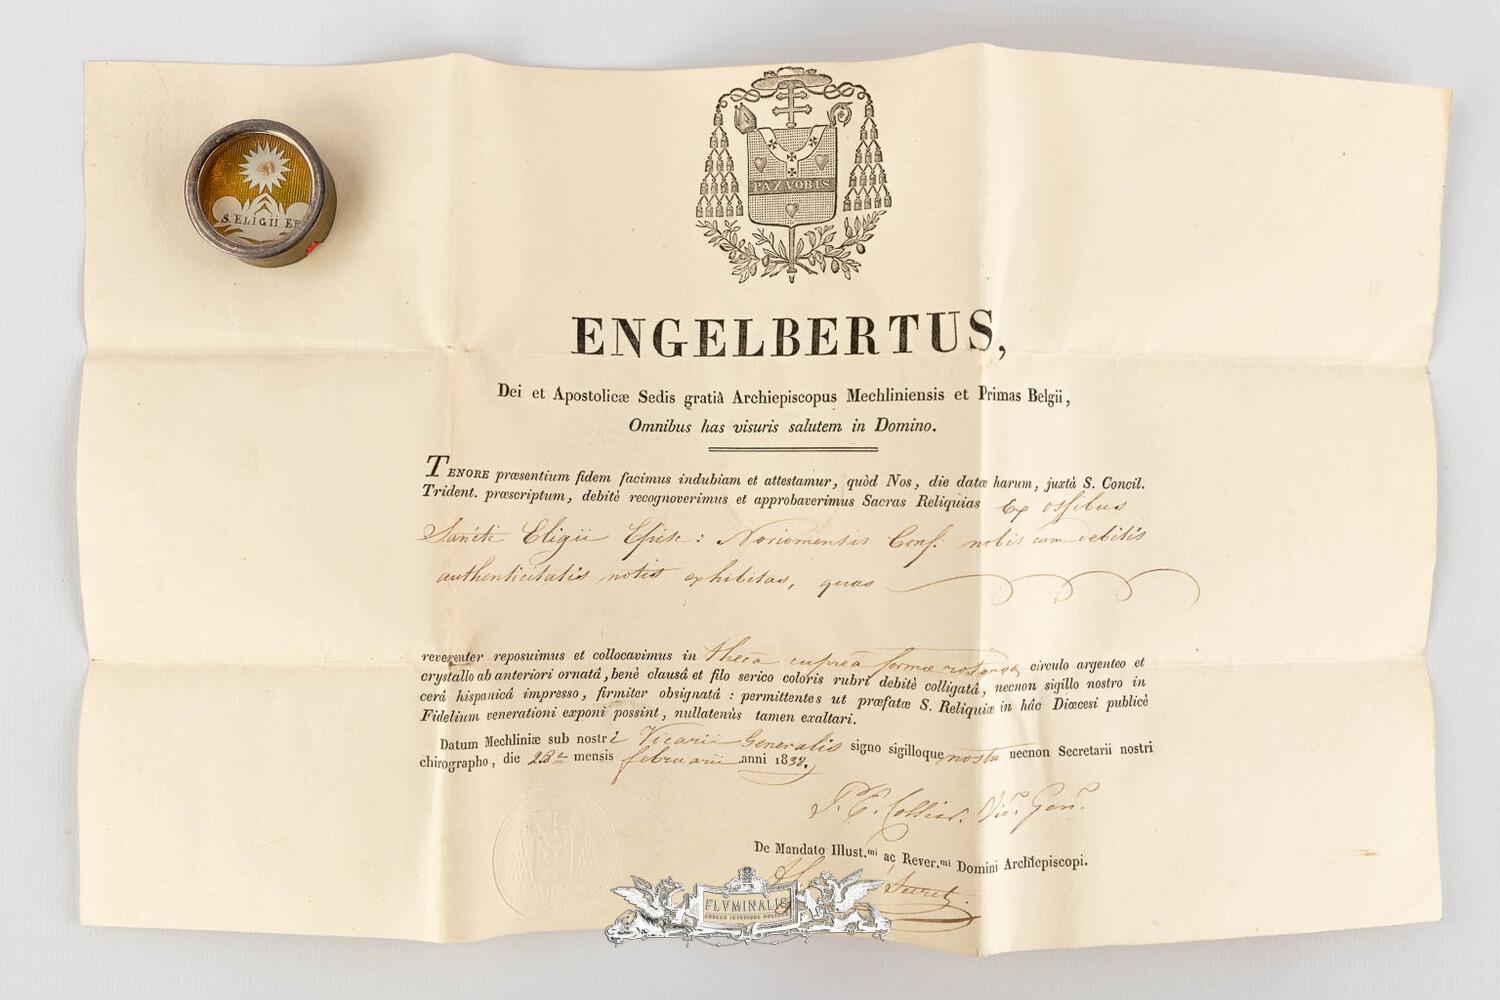 S. ELIGII EP
PAX VOBIS
ENGELBERTUS,
Dei et Apostolicæ Sedis gratiâ Archiepiscopus Mechliniensis et Primas Belgii,
Omnibus has visuris salutem in Domino.
TENORE præsentium fidem facimus indubiam et attestamur, quòd Nos, die datæ harum, juxtà S. Concil.
Trident. præscriptum, debitè recognoverimus et approbaverimus Sacras Reliquias Ex ossibus
Sancti Eligii Episc: Noviomensis Conf. nobis cum debitis
authenticitatis notis exhibitas, quas
reverenter reposuimus et collocavimus in thecâ cupreâ formæ rotundæ circulo argenteo et
crystallo ab anteriori ornatâ, benè clausâ et filo serico coloris rubri debitè colligatâ, necnon sigillo nostro in
cerâ hispanicâ impresso, firmiter obsignatâ : permittentes ut præfatæ S. Reliquiæ in hâc Diœcesi publicè
Fidelium venerationi exponi possint, nullatenùs tamen exaltari.
Datum Mechliniæ sub nostri Vicarii Generalis signo sigilloque nostro necnon Secretarii nostri
chirographo, die 23a mensis februarii anni 1838.
Vic. Gen.
De Mandato Illust.mi ac Rever.mi Domini Archiepiscopi.
Secret.
FLVMINALIS